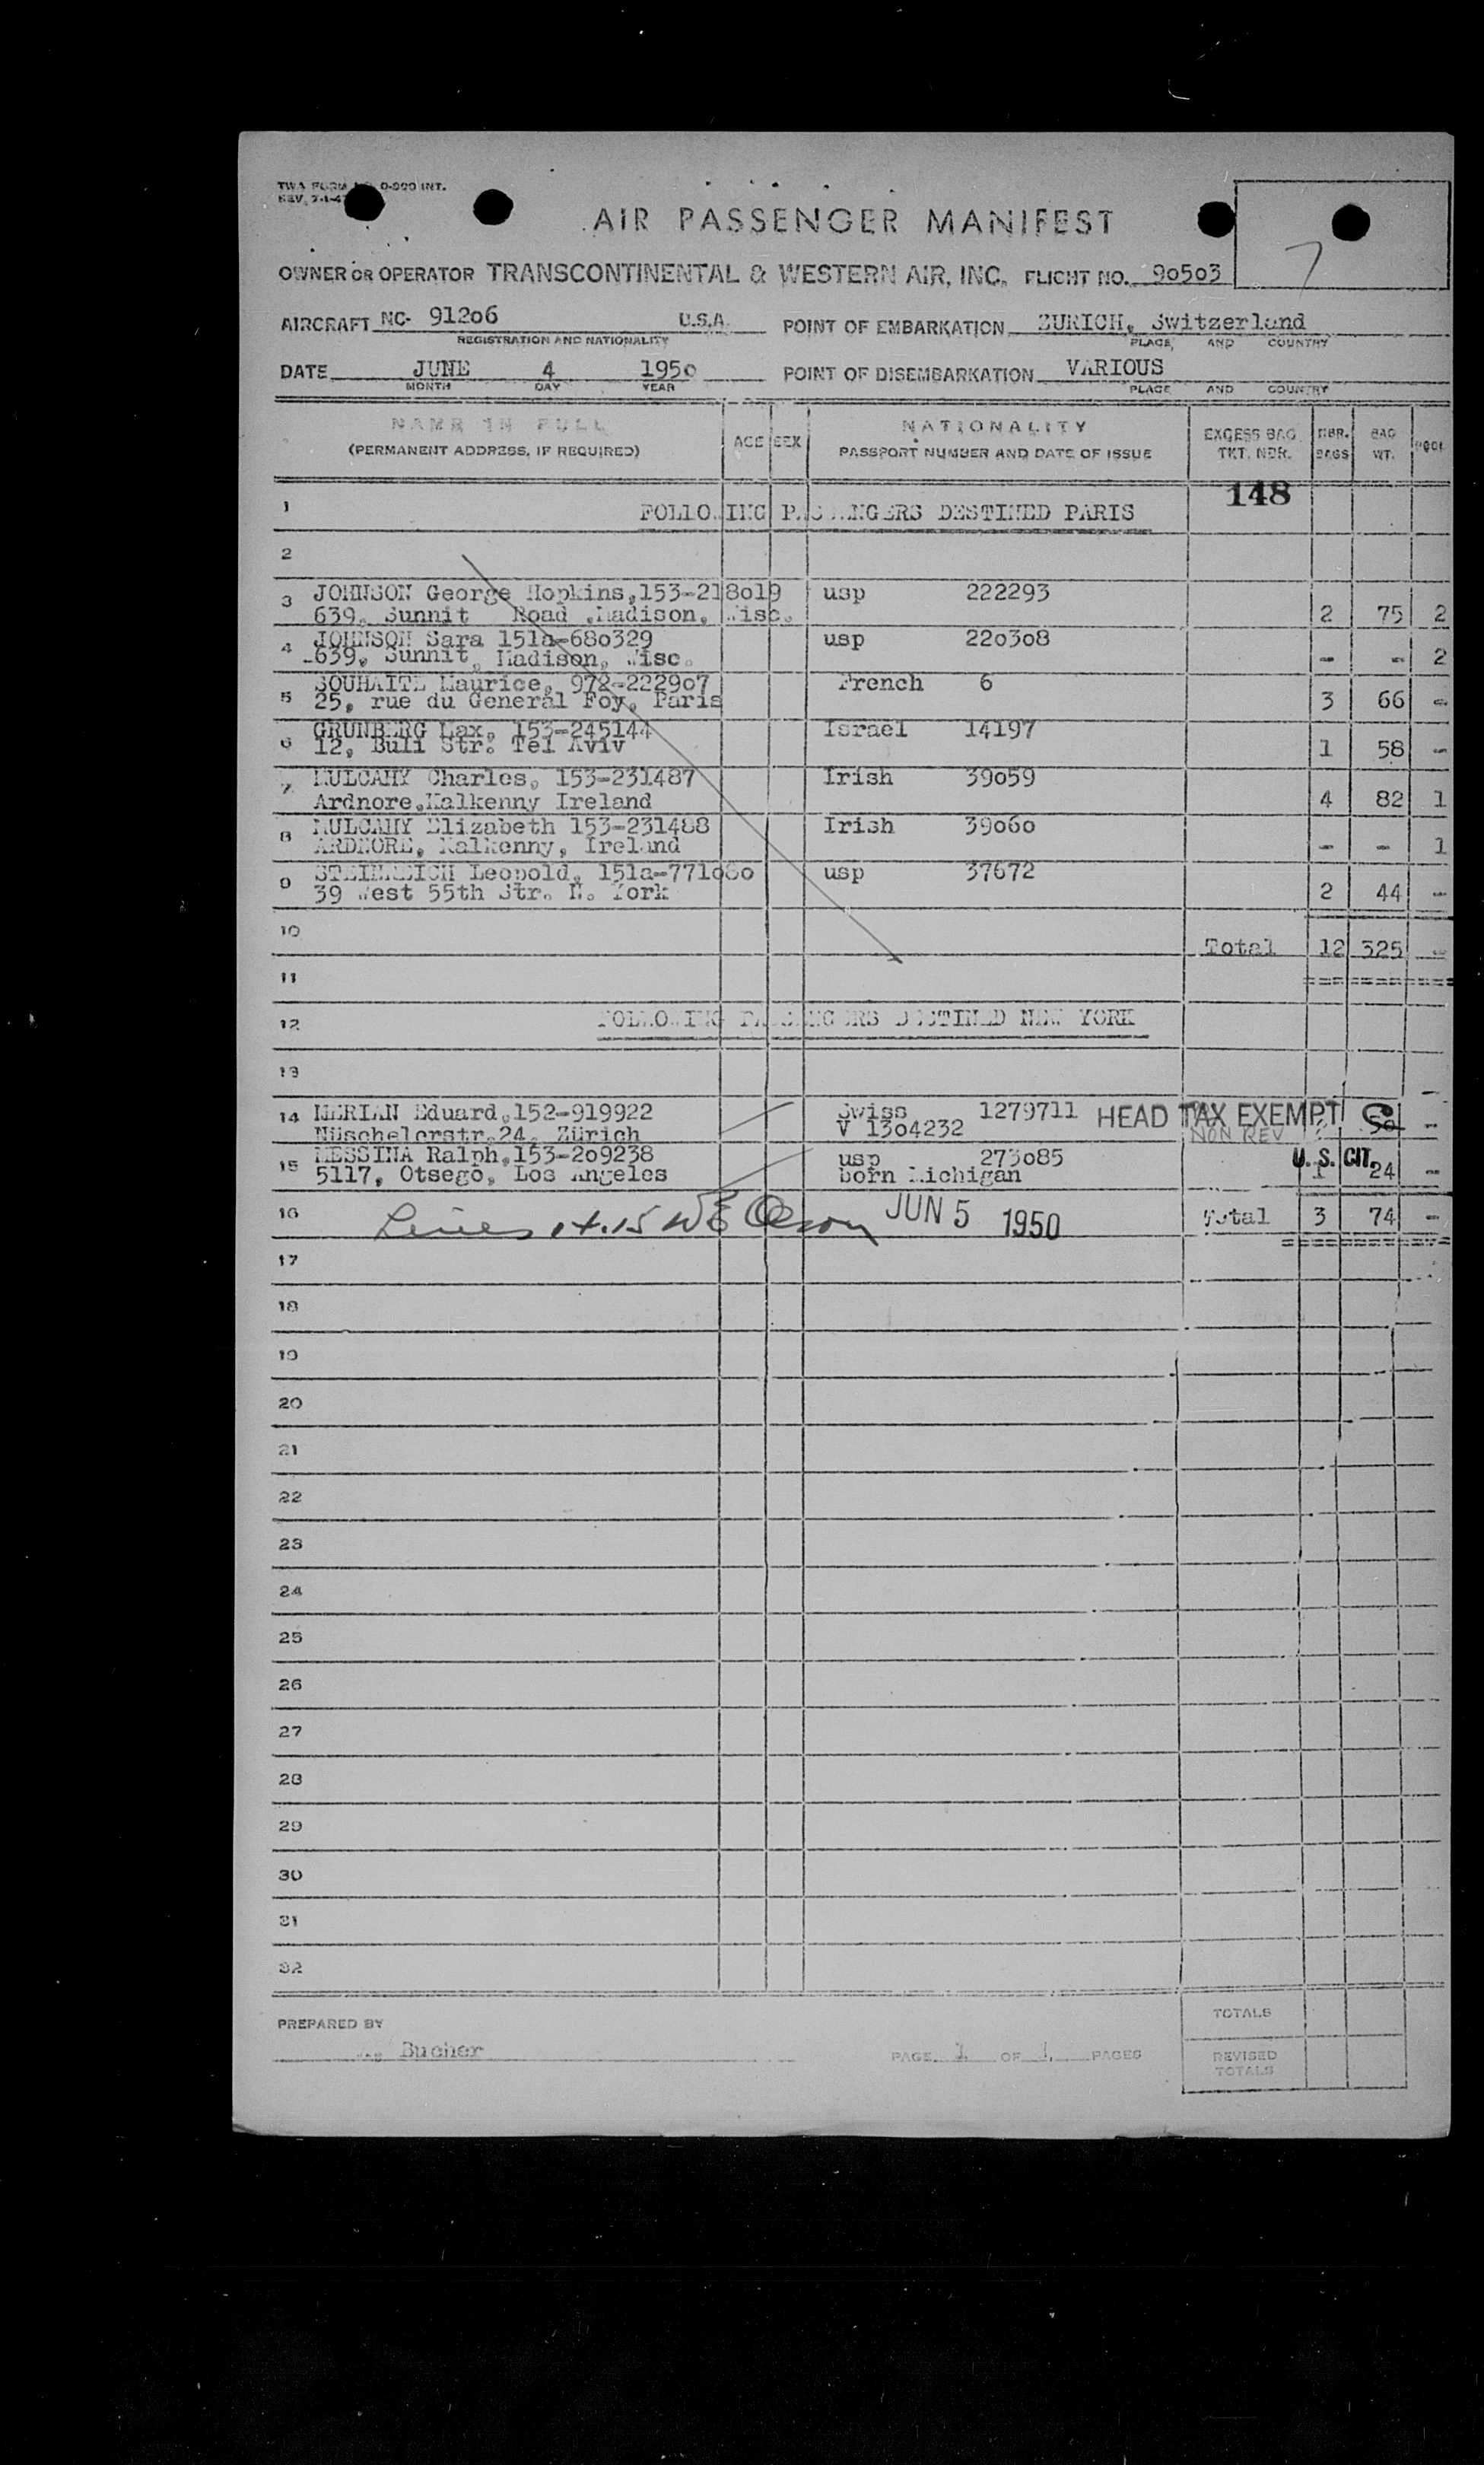 TWA FORM 0-900 INT.
REV. 7-1-47
AIR PASSENGER MANIFEST
7
OWNER OR OPERATOR TRANSCONTINENTAL & WESTERN AIR, INC. FLIGHT NO. 90503
AIRCRAFT NC- 91206 U.S.A. POINT OF EMBARKATION ZURICH, Switzerland
REGISTRATION AND NATIONALITY PLACE AND COUNTRY
DATE JUNE 4 1950 POINT OF DISEMBARKATION VARIOUS
MONTH DAY YEAR PLACE AND COUNTRY
NAME IN FULL NATIONALITY
(PERMANENT ADDRESS, IF REQUIRED) AGE SEX PASSPORT NUMBER AND DATE OF ISSUE EXCESS BAG TKT. NBR. NBR. BAGS BAG WT. POOL
148
1 FOLLOWING PASSENGERS DESTINED PARIS
2
3 JOHNSON George Hopkins,153-218019 usp 222293
639, Sunnit Road ,Madison, Wisc. 2 75 2
4 JOHNSON Sara 151a-680329 usp 220308
639, Sunnit, Madison, Wisc. - - 2
5 SOUHAITE Maurice, 972-222907 French 6
25, rue du General Foy, Paris 3 66 -
6 GRUNBERG Max, 153-245144 Israel 14197
12, Buli Str. Tel Aviv 1 58 -
7 MULCAHY Charles, 153-231487 Irish 39059
Ardnore,Kalkenny Ireland 4 82 1
8 MULCAHY Elizabeth 153-231488 Irish 39060
ARDNORE, Kalkenny, Ireland - - 1
9 Leopold, 151a-771080 usp 37672
39 West 55th Str. N. York 2 44 -
10 Total 12 325 -
11
12 FOLLOWING PASSENGERS DESTINED NEW YORK
13
14 MERIAN Eduard,152-919922 Swiss 1279711 HEAD TAX EXEMPT
Nüschelerstr.24, Zürich V 1304232 NON REV 2 50 -
15 MESSINA Ralph,153-209238 usp 273085 U. S. CIT.
5117, Otsego, Los Angeles born Michigan 1 24 -
16 Lines 14.15 WE Olson JUN 5 1950 Total 3 74 -
17
18
19
20
21
22
23
24
25
26
27
28
29
30
31
32
PREPARED BY TOTALS
Bucher PAGE 1 OF 1 PAGES REVISED TOTALS